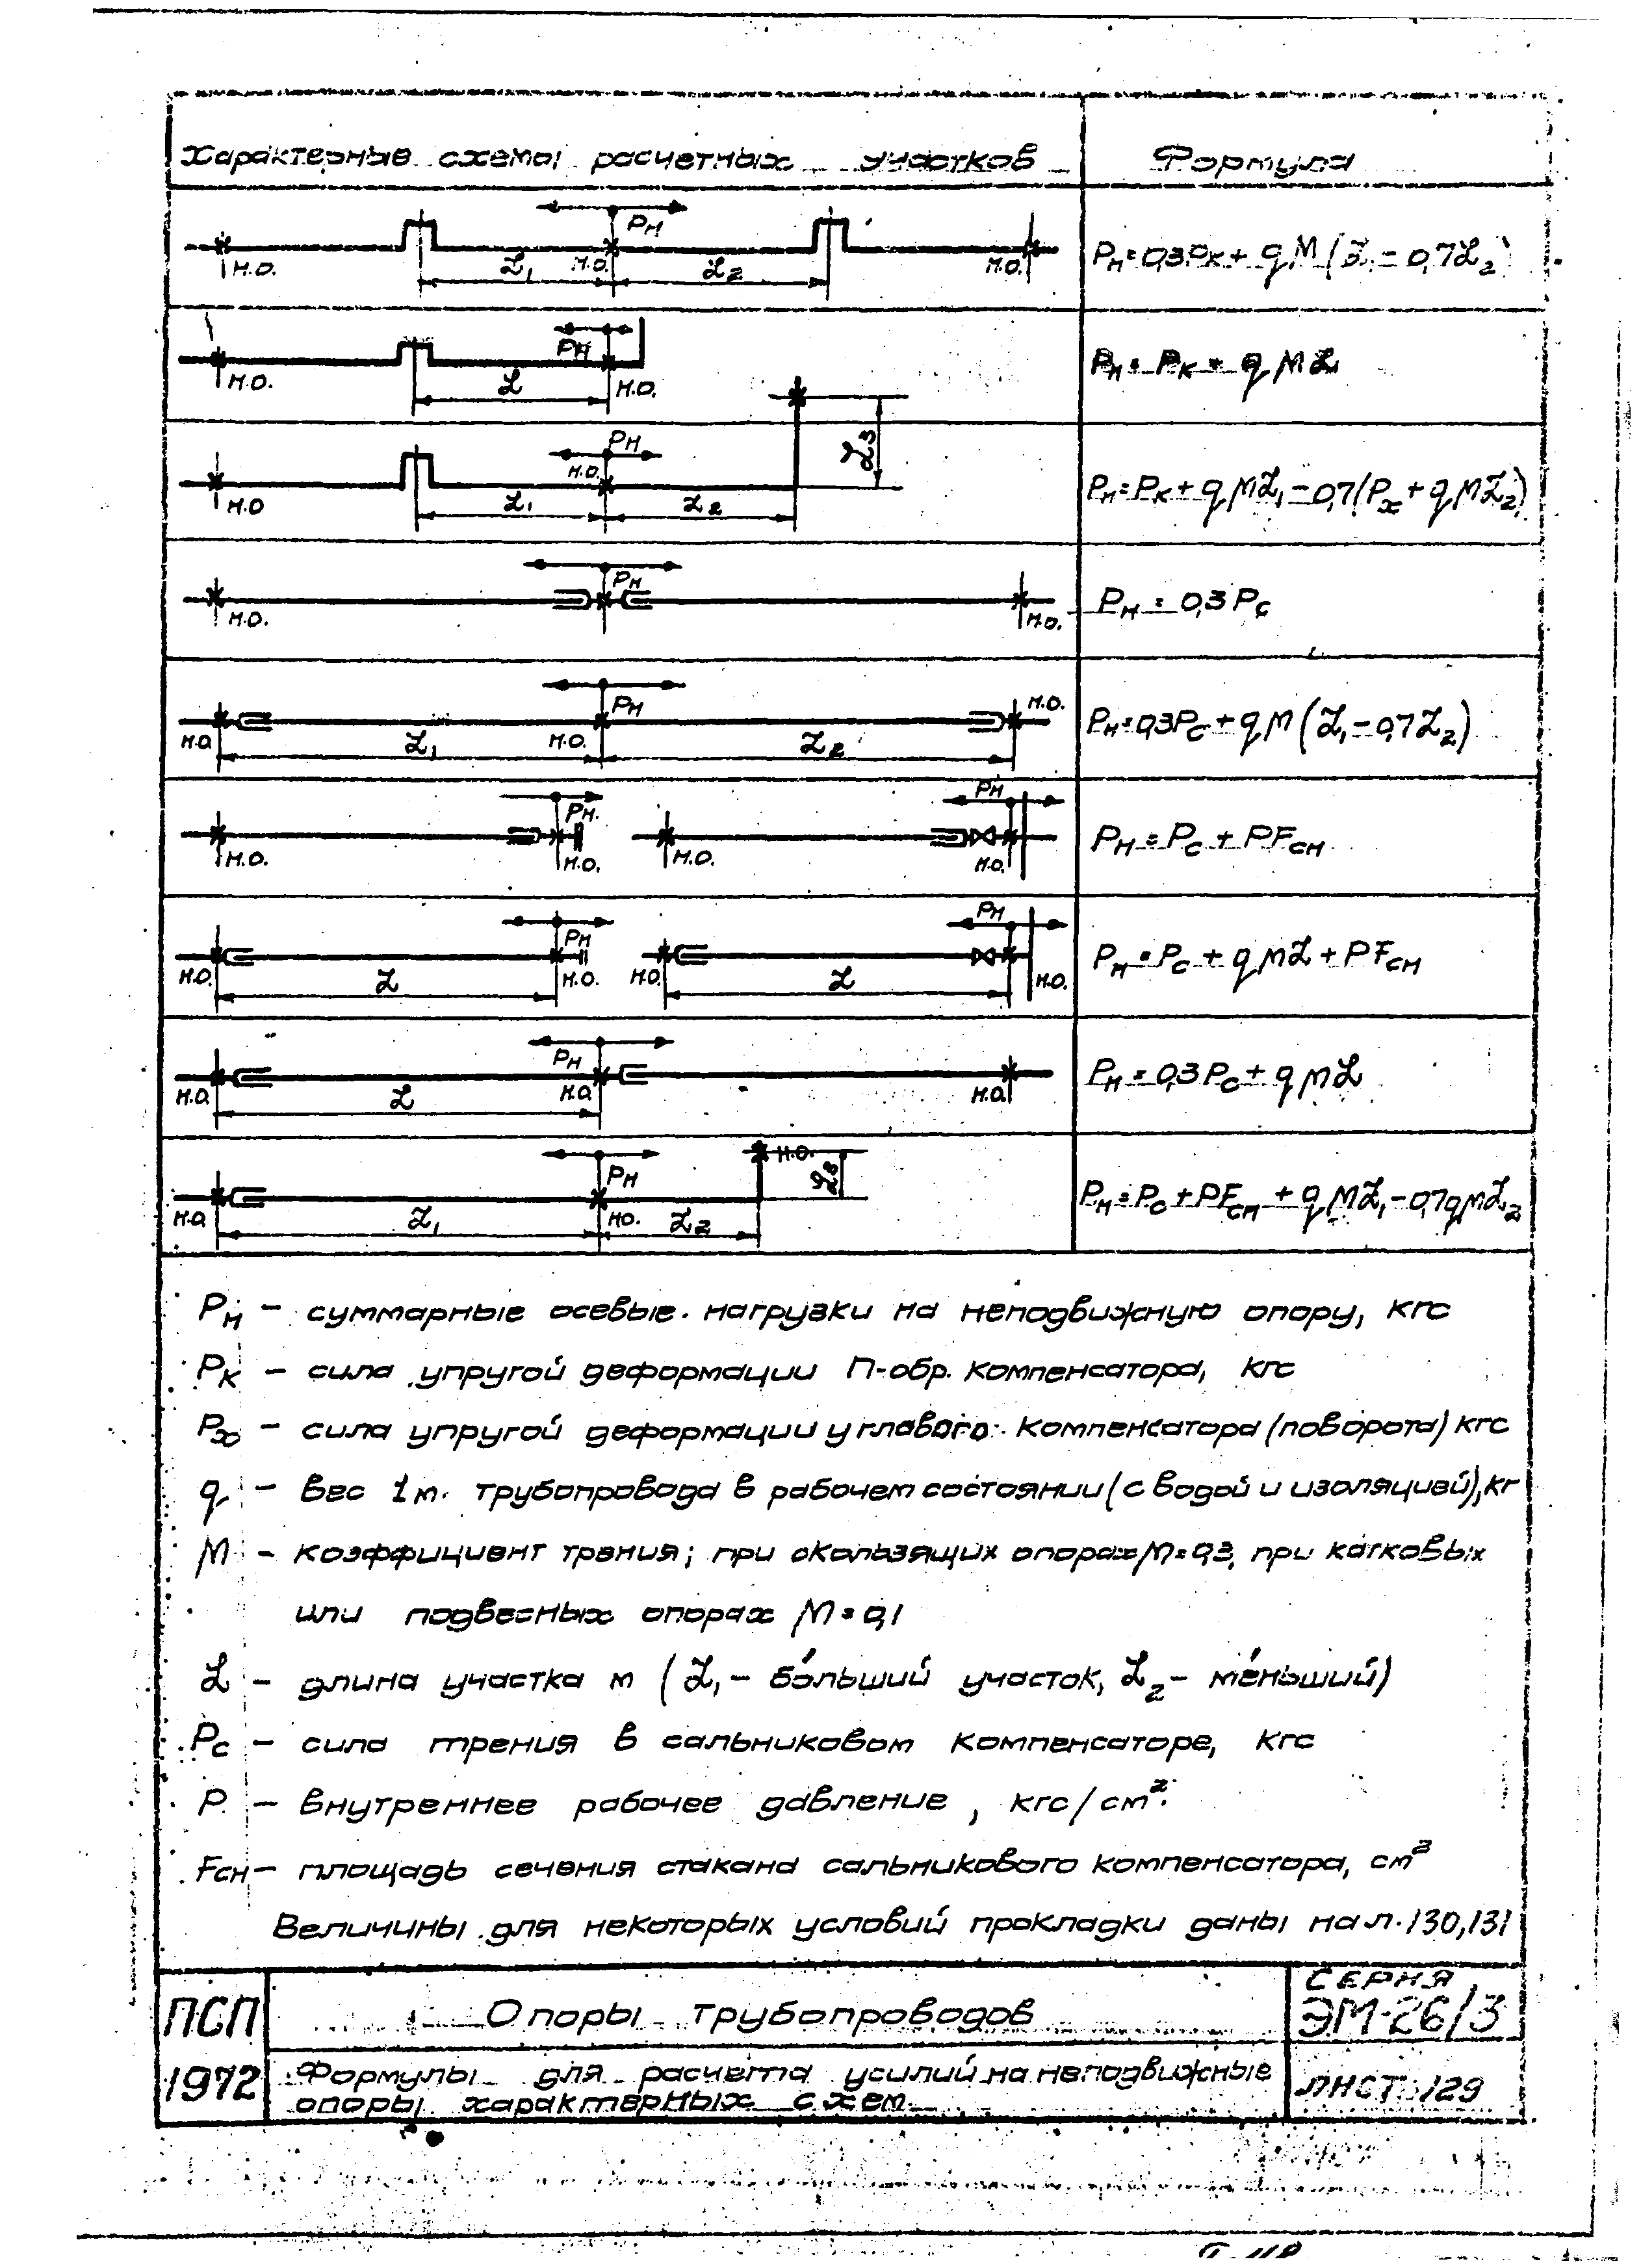 Характерные схемы расчетных участков
Формула
Pн
Н.О. L₁ Н.О. L₂ Н.О.
Pн=0,3Pк+qM(L₁-0,7L₂)
Pн
Н.О. L Н.О.
Pн=Pк+qML
Pн
L₃
Н.О.
Н.О L₁ L₂
Pн=Pк+qML₁-0,7(Pх+qML₂)
Pн
Н.О. Н.О.
Pн=0,3Pс
Pн Н.О.
Н.О. L₁ Н.О. L₂
Pн=0,3Pс+qM(L₁-0,7L₂)
Pн Pн
Н.О. Н.О. Н.О. Н.О.
Pн=Pс+PFсн
Pн Pн
Н.О. L Н.О. Н.О. L Н.О.
Pн=Pс+qML+PFсн
Pн
Н.О. L Н.О. Н.О.
Pн=0,3Pс+qML
Н.О.
Pн L₃
Н.О. L₁ НО. L₂
Pн=Pс+PFсн+qML₁-0,7qML₂
Pн – суммарные осевые нагрузки на неподвижную опору, кгс
Pк – сила упругой деформации П-обр. компенсатора, кгс
Pх – сила упругой деформации углового компенсатора (поворота) кгс
q – вес 1м. трубопровода в рабочем состоянии (с водой и изоляцией), кг
M – коэффициент трения; при скользящих опорах M=0,3, при катковых
или подвесных опорах M=0,1
L – длина участка м (L₁ – бо́льший участок, L₂ – ме́ньший)
Pс – сила трения в сальниковом компенсаторе, кгс
P – внутреннее рабочее давление, кгс/см²
Fсн – площадь сечения стакана сальникового компенсатора, см²
Величины для некоторых условий прокладки даны на л. 130,131
ПСП
1972
Опоры трубопроводов
Формулы для расчета усилий на неподвижные
опоры характерных схем
СЕРИЯ
ЭМ-26/3
ЛИСТ 129